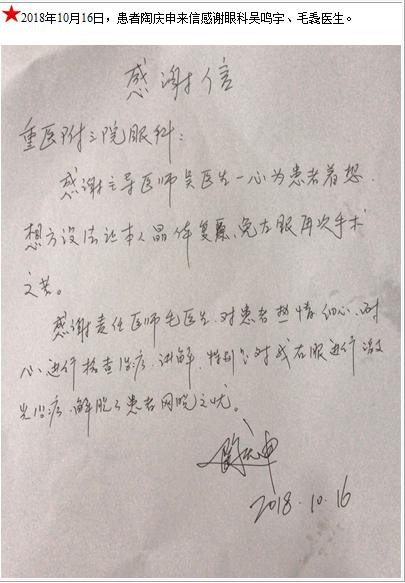 ★2018年10月16日，患者陶庆申来信感谢眼科吴鸣宇、毛毳医生。
感谢信
重医附三院眼科：
感谢主导医师吴医生一心为患者着想，
想方设法让本人晶体复原、免左眼再次手术
之苦。
感谢责任医师毛医生，对患者热情、细心、耐
心进行检查治疗、讲解，特别是对我右眼进行激
光治疗，解脱了患者网脱之忧。
陶庆申
2018.10.16